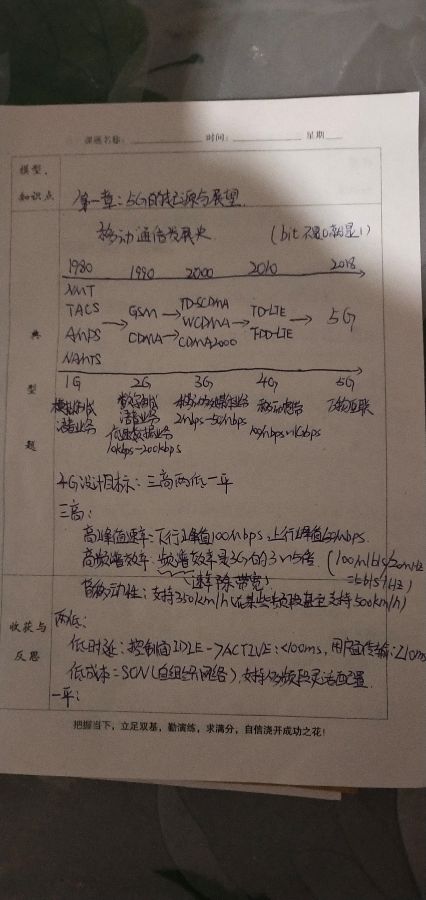 课题名称: 时间: 星期
模型、
知识点
第一章: 5G的起源与展望
移动通信发展史 (bit 不是0就是1)
1980 1990 2000 2010 2018
NMT
TACS GSM TD-SCDMA TD-LTE
AMPS → → WCDMA → → 5G
CDMA CDMA2000 FDD-LTE
NAMTS
典
型
题
1G 2G 3G 4G 5G
模拟制式 数字制式 移动多媒体业务 移动宽带 万物互联
语音业务 语音业务 2mbps-50mbps 100mbps-1Gbps
低速数据业务
10kbps-200kbps
4G设计目标: 三高两低一平
三高:
高峰值速率: 下行峰值100mbps, 上行峰值50mbps.
高频谱效率: 频谱效率是3G的3~5倍 (100mbls/20mHz
(速率除带宽) =5bls/Hz)
高移动性: 支持350km/h (某些频段甚至支持500km/h)
收获与
反思
两低:
低时延: 控制面IDLE->ACTIVE: <100ms, 用户面传输: <10ms
低成本 = SON(自组织网络), 支持多频段灵活配置.
一平:
把握当下，立足双基，勤演练，求满分，自信浇开成功之花!